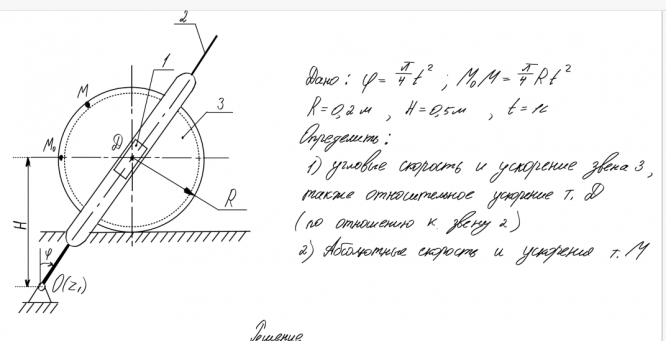 2
1
M
3
M₀
D
R
H
φ
O(z₁)
Дано: φ = π/4 t² ; M₀M = π/4 R t²
R = 0,2 м , H = 0,5 м , t = 1с
Определить:
1) угловые скорость и ускорение звена 3,
также относительное ускорение т. D
(по отношению к звену 2)
2) Абсолютные скорость и ускорения т. M
Решение